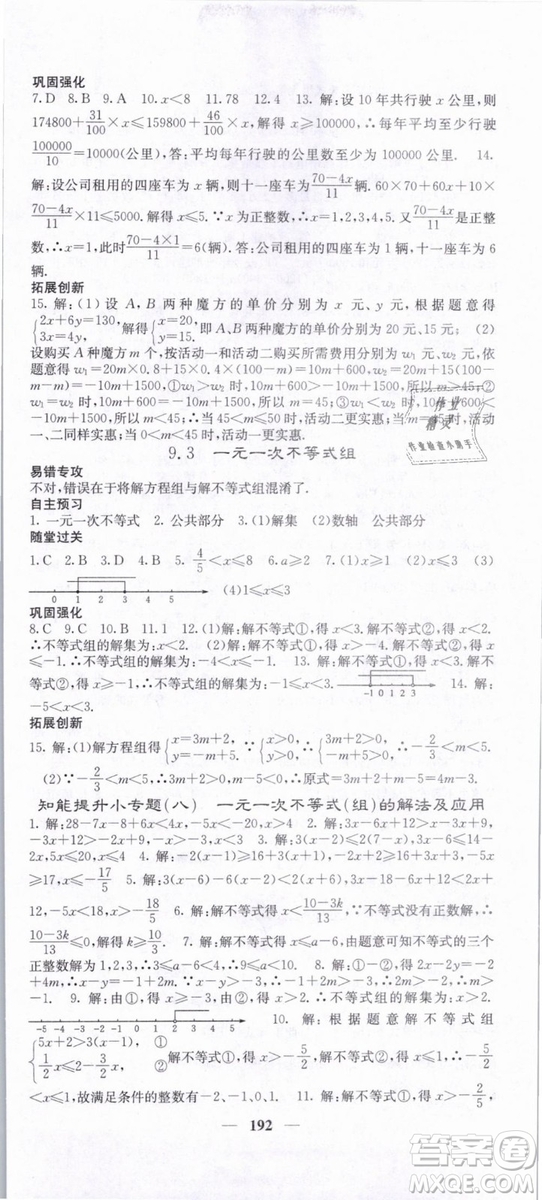 巩固强化
7.D 8.B 9.A 10.x<8 11.78 12.4 13. 解:设 10 年共行驶 x 公里,则
174800+31/100×x≤159800+46/100×x,解得 x≥100000,∴每年平均行驶
100000/10=10000(公里),答:平均每年行驶的公里数至少为 10000 公里. 14.
解:设公司租用的四座车为 x 辆,则十一座车为70-4x/11辆. 60×70+60x+10×
70-4x/11×11≤5000. 解得 x≤5. ∵x 为正整数,∴x=1,2,3,4,5. 又∵70-4x/11是正整
数,∴x=1,此时70-4×1/11=6(辆). 公司租用的四座车为 1 辆,十一座车为 6
辆.
拓展创新
15. 解:(1) 设 A,B 两种魔方的单价分别为 x 元、y 元,根据题意得
{2x+6y=130,3x=4y, 解得{x=20,y=15. 即 A,B 两种魔方的单价分别为 20 元、15 元; (2)
设购买 A 种魔方 m 个,按活动一和活动二购买所需费用分别为 w1 元、w2 元,依
题意得 w1=20m×0.8+15×0.4×(100-m)=10m+600,w2=20m+15(100-
m-m)=-10m+1500,①w1>w2 时,10m+600>-10m+1500,所以 m>45;
②w1=w2 时,10m+600=-10m+1500,所以 m=45;③w1<w2 时,10m+600<
-10m+1500,所以 m<45;当 m<45 时,活动一更实惠;当 m=45 时,活动
一、二同样实惠;当 m>45 时,活动二更实惠.
作业
精灵
作业检查小助手
9.3 一元一次不等式组
易错专攻
不对,错误在于将解方程组与解不等式组混淆了.
自主预习
1. 一元一次不等式 2. 公共部分 3. (1)解集 (2)数轴 公共部分
随堂过关
1.C 2.B 3.D 4.B 5. 4/5<x≤8 6.a≥2 7.(1)x≥1 (2)x≤3 (3)
0 1 2 3 4 5 (4)1≤x≤3
巩固强化
8.C 9.C 10.B 11.1 12.(1)解:解不等式①,得 x<3. 解不等式②,得 x<2.
∴不等式组的解集为:x<2. (2)解:解不等式①,得 x≤1. 解不等式②,得 x<4.
∴不等式组的解集为:x≤1. 13. 解:-1≤x<3. -1 0 1 2 3 14. 解:
-5<x≤3.
拓展创新
15. 解:(1)解方程组得{x=3m+2,y=4-m. ∵{x>0,y>0,∴{3m+2>0,4-m>0, 解得:-2/3<m<
4. (2)∵-2/3<m<5,∴3m+2>0,m-5<0,∴原式=3m+2+5-m=2m+7.
知能提升小专题(八) 一元一次不等式(组)的解法及应用
1. 解:28-7x-8+6x≥24,-x≥4,x≤-4. 2. 解:3x-6x+12>3x+9,
-3x+12>3x+9,-6x>-3,x<1/2. 3. 解:3(x-3)-6≤2(7x-1),3x-9-6
≤14x-2,-11x≤13,x≥-13/11. 4. 解:2(2x-1)-(9x+2)≤12,4x-2-9x-2≤
12,-5x≤16,x≥-16/5. 5. 解:3(x-6)-6(x-2)<2(x+6),3x-18-6x+12<2x+
12,-5x<18,x>-18/5. 6. 解:解不等式得 x<10-3k/13,∵不等式没有正数解,∴
10-3k/13≤0. 解得 k≥10/3. 7. 解:解不等式得 x≤-a/3,由题意可知不等式的三个
正整数解为 1,2,3,∴3≤-a/3<4,∴-12<a≤-9. 8. 解:由①得 x≤4,由②得
x<1,∴x<1. 9. 解:由①得 x<5,由②得 x≥2,∴2≤x<5. 在数轴上表示为:
-5 -4 -3 -2 -1 0 1 2 3 4 5 10. 解:根据题意解不等式组
{5x+2>3(x-1), ① 1/2x≤2-3/2x, ② 解不等式①,得 x>-5/2,解不等式②,得 x≤1,∴-5/2
<x≤1,故满足条件的整数有-2、-1、0、1. 11. 解:解不等式①得 x>-2/5,
192
答案圈
MXQE.COM